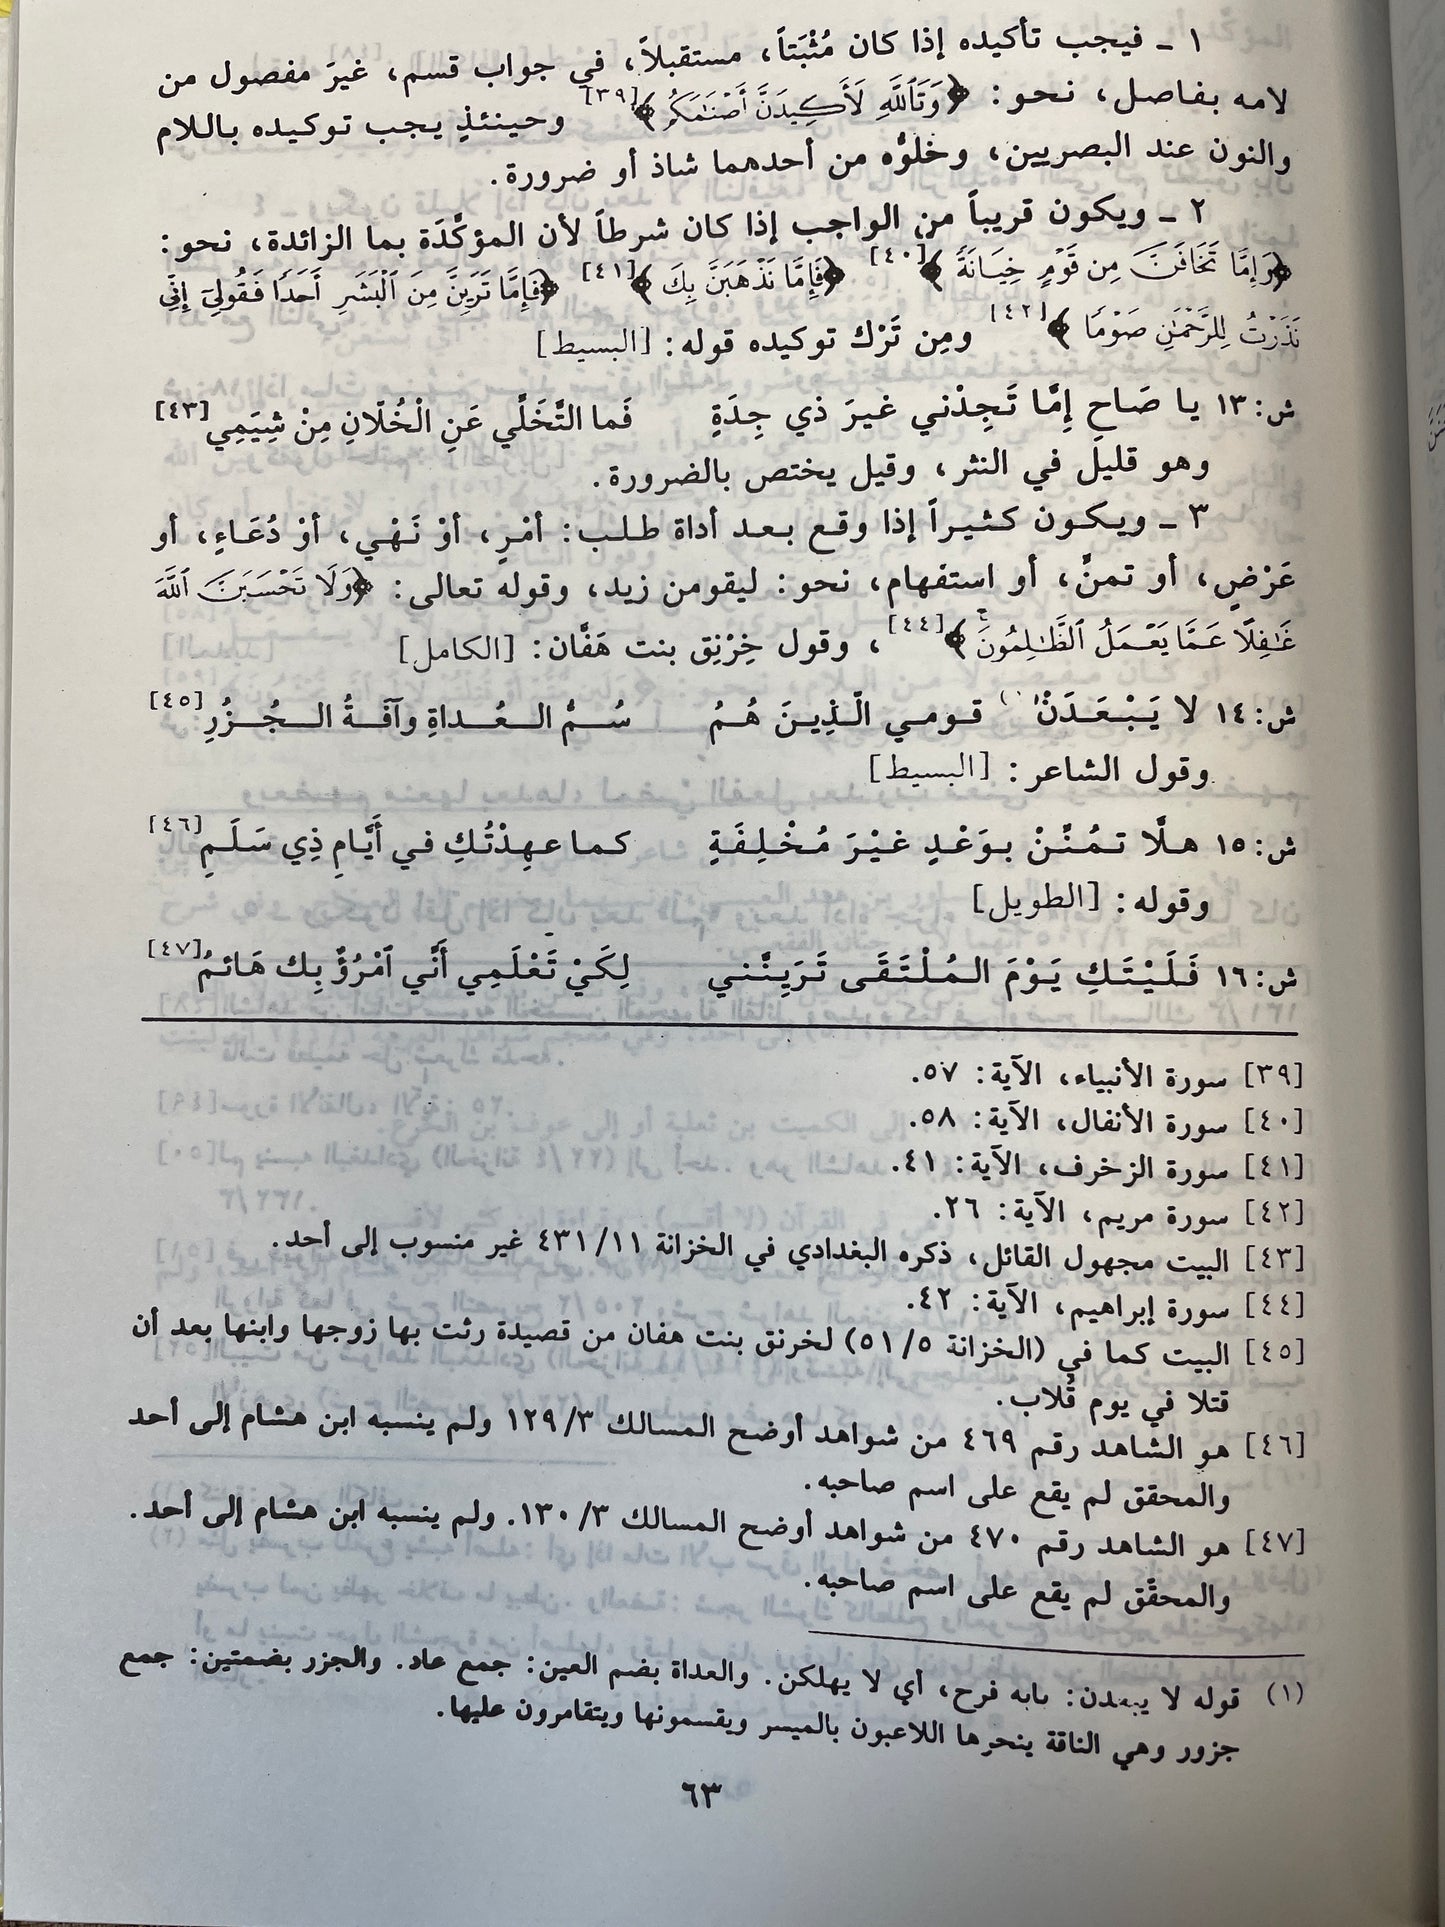 ١ ـ فيجب تأكيده إذا كان مُثْبَتاً، مستقبلاً، في جواب قسم، غيرَ مفصول من
لامه بفاصل، نحو: ﴿وَتَٱللَّهِ لَأَكِيدَنَّ أَصْنَـٰمَكُم﴾[٣٩] وحينئذٍ يجب توكيده باللام
والنون عند البصريين، وخلوُّه من أحدهما شاذ أو ضرورة.
٢ ـ ويكون قريباً من الواجب إذا كان شرطاً لأن المؤكَّدَة بما الزائدة، نحو:
﴿وَإِمَّا تَخَافَنَّ مِن قَوْمٍ خِيَانَةً﴾[٤٠] ﴿فَإِمَّا نَذْهَبَنَّ بِكَ﴾[٤١] ﴿فَإِمَّا تَرَيِنَّ مِنَ ٱلْبَشَرِ أَحَدًا فَقُولِىٓ إِنِّى
نَذَرْتُ لِلرَّحْمَـٰنِ صَوْمًا﴾[٤٢] ومِن تَرْك توكيده قوله: [البسيط]
ش: ١٣ يا صَاحِ إِمَّا تَجِدْني غيرَ ذي جِدَةٍ فَما التَّخَلِّي عَنِ الْخُلّانِ مِنْ شِيَمِي[٤٣]
وهو قليل في النثر، وقيل يختص بالضرورة.
٣ ـ ويكون كثيراً إذا وقع بعد أداة طلب: أمْرٍ، أوْ نَهْيٍ، أوْ دُعَاءٍ، أو
عَرْضٍ، أو تمنٍّ، أو استفهام، نحو: ليقومن زيد، وقوله تعالى: ﴿وَلَا تَحْسَبَنَّ ٱللَّهَ
غَـٰفِلًا عَمَّا يَعْمَلُ ٱلظَّـٰلِمُونَ﴾[٤٤]، وقول خِرْنِق بنت هَفَّان: [الكامل]
ش: ١٤ لا يَبْعَدَنْ(١) قومي الّذِينَ هُمُ سُمُّ العُداةِ وآفَةُ الجُزُرِ[٤٥]
وقول الشاعر: [البسيط]
ش: ١٥ هلّا تمُنِّنْ بوَعْدٍ غيْرَ مُخْلِفَةٍ كما عهِدْتُكِ في أَيَّامِ ذِي سَلَمِ[٤٦]
وقوله: [الطويل]
ش: ١٦ فَلَيْتَكِ يَوْمَ المُلْتَقَى تَرَيِنَّني لِكَيْ تَعْلَمِي أَنِّي ٱمْرُؤٌ بِك هَائمُ[٤٧]
[٣٩] سورة الأنبياء، الآية: ٥٧.
[٤٠] سورة الأنفال، الآية: ٥٨.
[٤١] سورة الزخرف، الآية: ٤١.
[٤٢] سورة مريم، الآية: ٢٦.
[٤٣] البيت مجهول القائل، ذكره البغدادي في الخزانة ٤٣١/١١ غير منسوب إلى أحد.
[٤٤] سورة إبراهيم، الآية: ٤٢.
[٤٥] البيت كما في (الخزانة ٥١/٥) لخرنق بنت هفان من قصيدة رثت بها زوجها وابنها بعد أن
قتلا في يوم قُلاب.
[٤٦] هو الشاهد رقم ٤٦٩ من شواهد أوضح المسالك ١٢٩/٣ ولم ينسبه ابن هشام إلى أحد
والمحقق لم يقع على اسم صاحبه.
[٤٧] هو الشاهد رقم ٤٧٠ من شواهد أوضح المسالك ١٣٠/٣. ولم ينسبه ابن هشام إلى أحد.
والمحقّق لم يقع على اسم صاحبه.
(١) قوله لا يبعدن: بابه فرح، أي لا يهلكن. والعداة بضم العين: جمع عاد. والجزر بضمتين: جمع
جزور وهي الناقة ينحرها اللاعبون بالميسر ويقسمونها ويتقامرون عليها.
٦٣